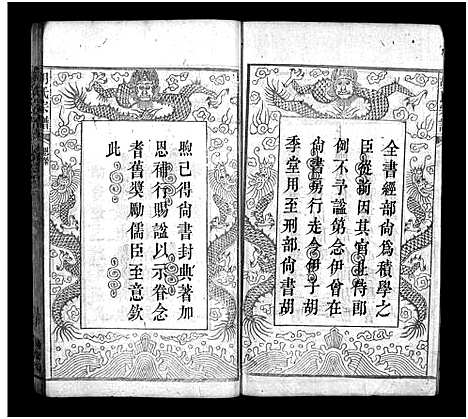 全書經部尙爲積學之
臣從前因其官止侍郎
例不予諡第念伊曾在
尙書房行走今伊子胡
季堂用至刑部尙書胡
煦已得尙書封典著加
恩補行賜諡以示眷念
耆舊奬勵儒臣至意欽
此